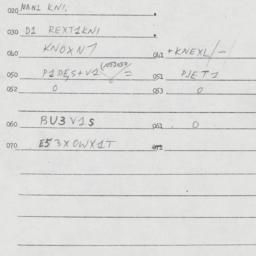 020 NAN1 KNI.
030 D1 REXT1KNI
040 KNOXN7 041 +KNEXL/-
050 P1DE,S+V1 = 051 DJET1
052 0 053 0
060 BU3V1S 061 0
070 E53XOWX1T 071